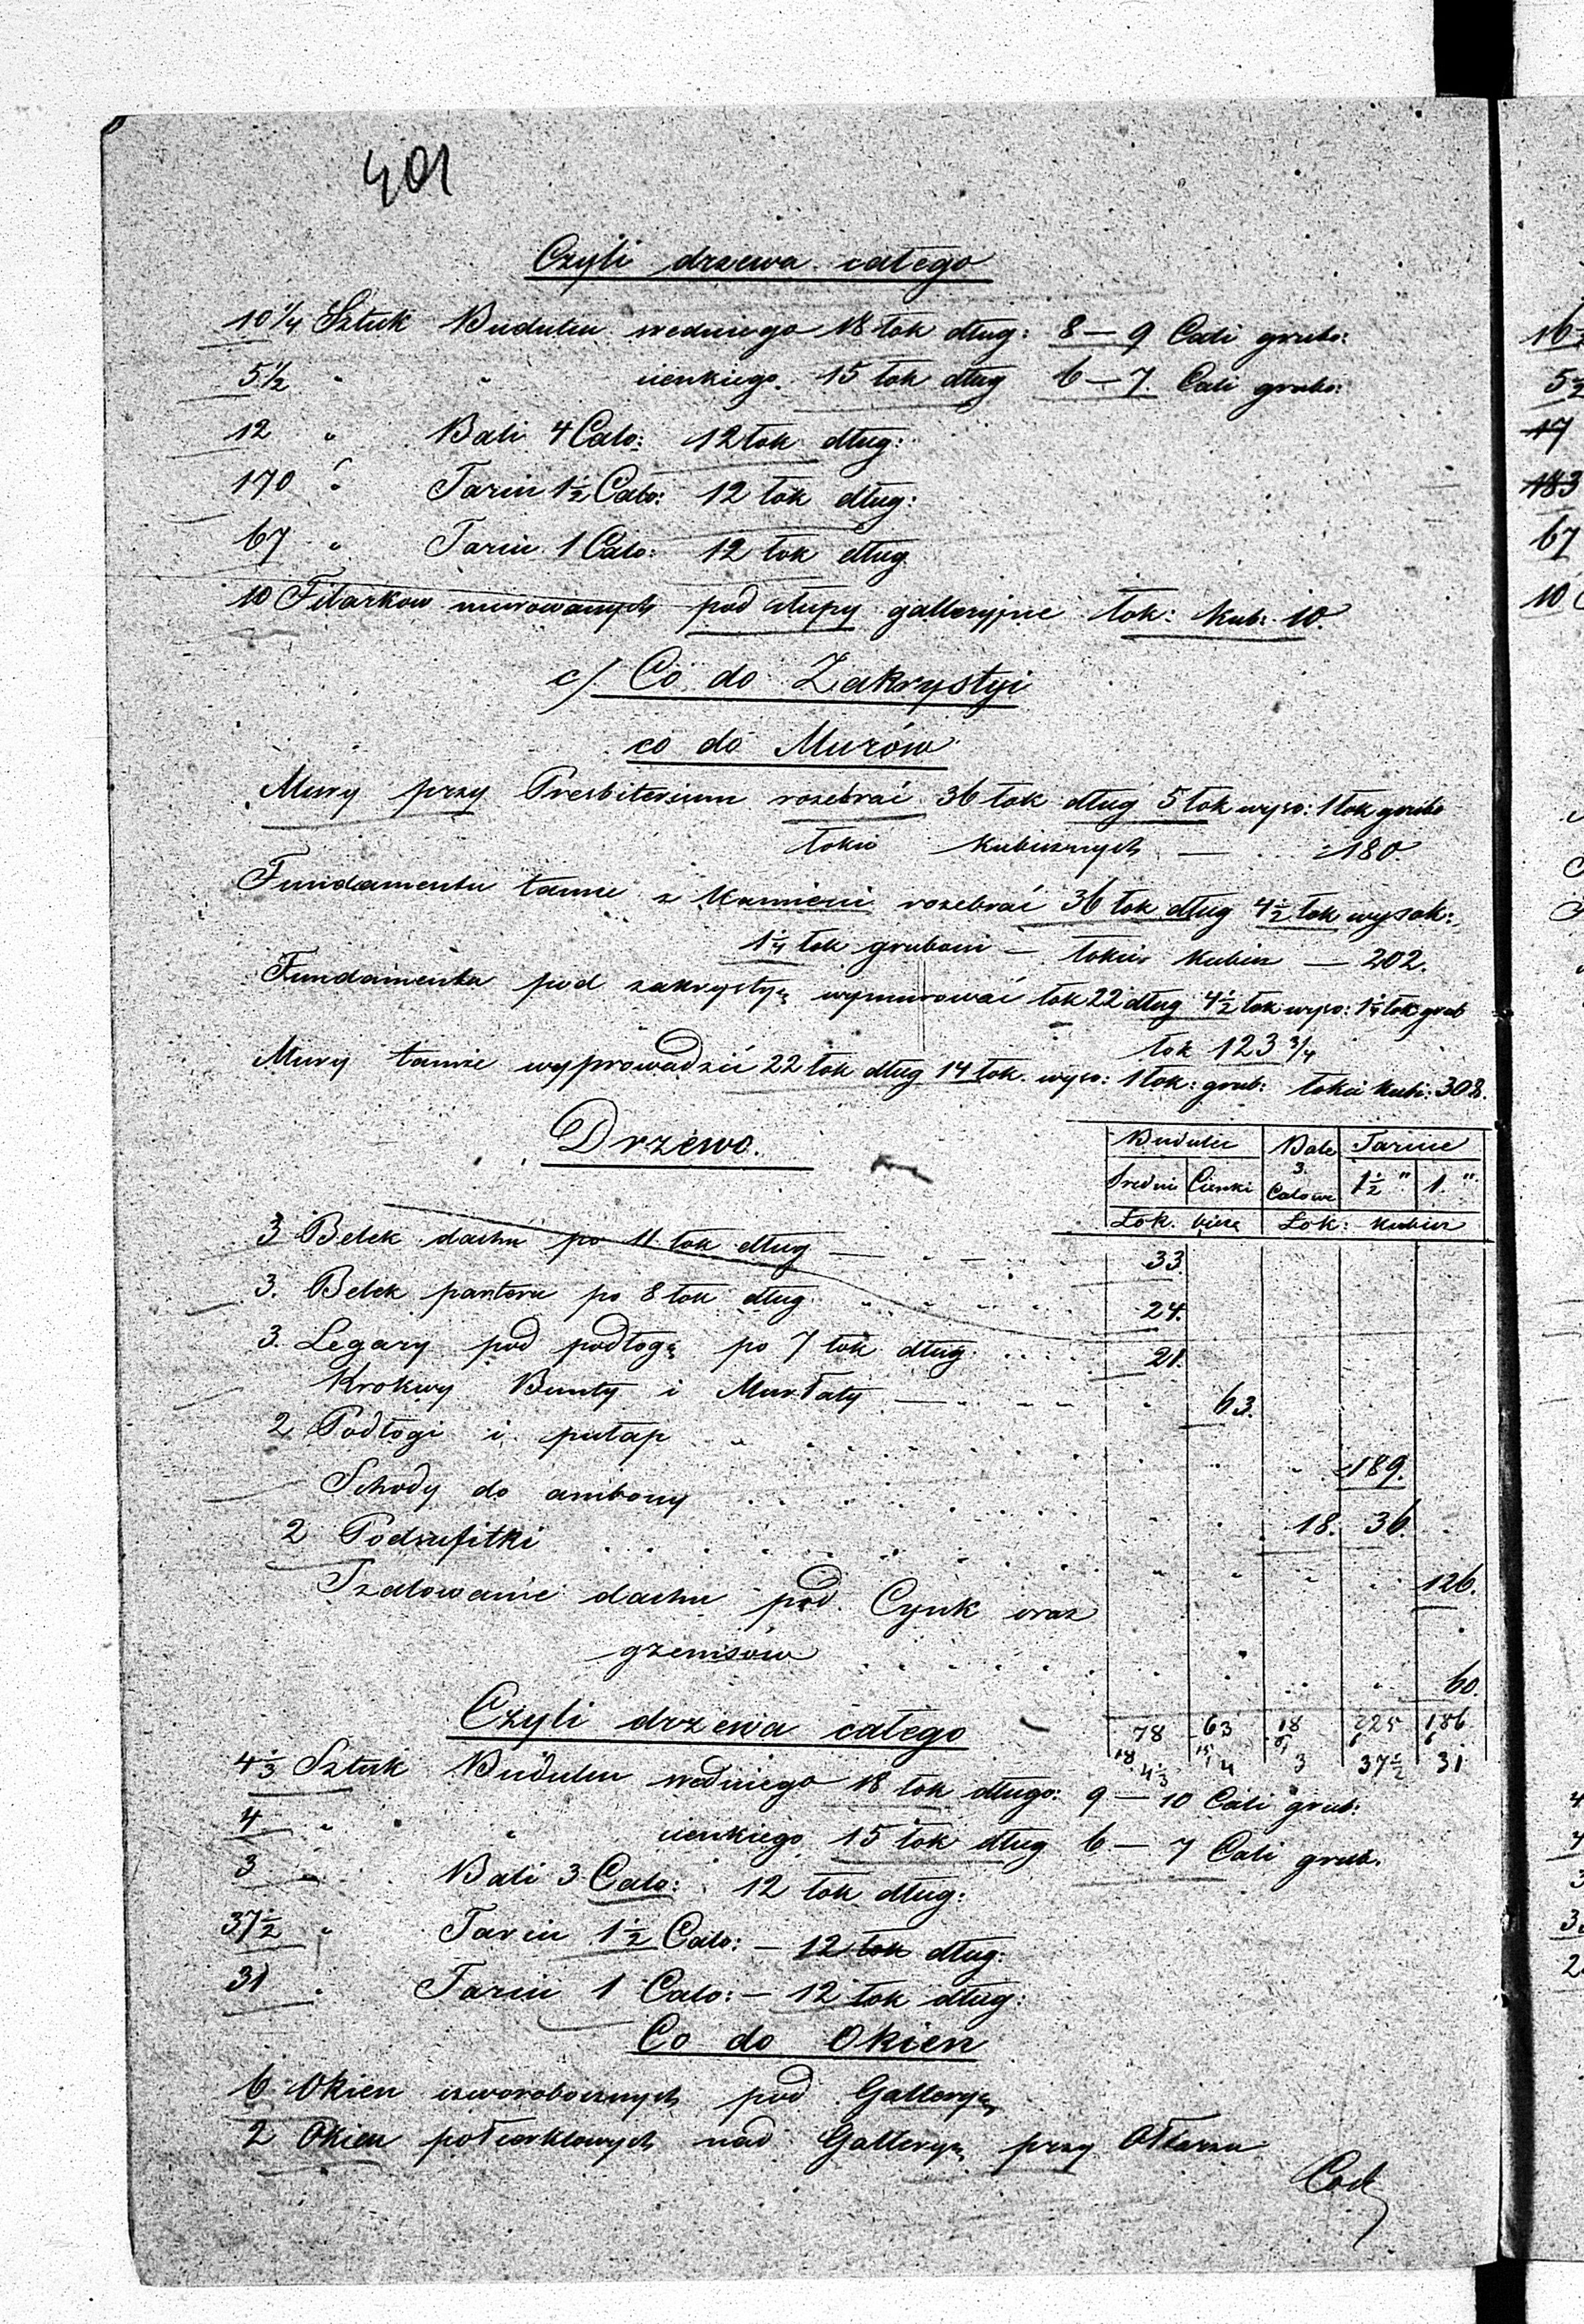 401
Czyli drzewa całego
10 1/4 Sztuk Budulcu średniego 18 łok dług: 8 — 9 Cali grubo:
5 1/2 " " cienkiego 15 łok dług 6 — 7. Cali grubo:
12 " Bali 4 Calo: 12 łok dług:
170 " Tarcic 1 1/2 Calo: 12 łok dług:
67 " Tarcic 1 Calo: 12 łok dług
10 Filarkow murowanych pod słupy galleryjne łok: kub: 10.
c/ Co do Zakrystyi
co do Murów
Mury przy Presbiterium rozebrać 36 łok dług 5 łok wyso: 1 łok grubo
łokci kubicznych — 180.
Fundamenta tamże z kamieni rozebrać 36 łok dług 4 1/2 łok wysok:
1 1/4 łok grubości — łokci kubicz — 202.
Fundamenta pod zakrystyą wymurować łok 22 dług 4 1/2 łok wyso: 1 1/4 łok grub
łok 123 3/4
Mury tamże wyprowadzić 22 łok dług 14 łok. wyso: 1 łok: grub: łokci kub: 308.
Drzewo.
Budulec Bale Tarcice
Średni Cienki 3 Calowe 1 1/2 " 1. "
Łok. bieżą Łok: kubicz
3 Belek dachu po 11 łok dług — 33.
3. Belek parteru po 8 łok dług 24.
3. Legary pod podłogą po 7 łok dług 21.
Krokwy Bunty i Murłaty — 63.
2 Podłogi i pułap 189.
Schody do ambony 18. 36.
2 Podsufitki 126.
Szalowanie dachu pod Cynk oraz
gzemsów 60.
78 63 18 225 186
18 4 1/3 15 4 6 3 6 37 1/2 6 31
Czyli drzewa całego
4 1/3 Sztuk Budulcu średniego 18 łok długo: 9 — 10 Cali grub:
4 " " cienkiego 15 łok dług 6 — 7 Cali grub.
3 " Bali 3 Calo: 12 łok dług:
37 1/2 " Tarcic 1 1/2 Calo: — 12 łok dług:
31 " Tarcic 1 Calo: — 12 łok dług:
Co do Okien
6 Okien czworobocznych pod Galleryą
2 Okien połcorklowych nad Galleryą przy Ołtarzu
16
5 1/2
17
183
67
10